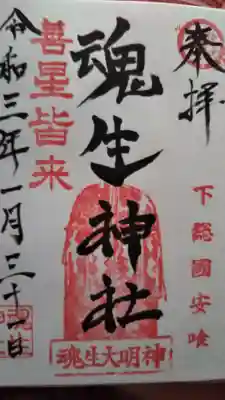 奉拝
下總國安喰
魂生神社
魂生大明神
善星皆来
令和三年一月三十一日